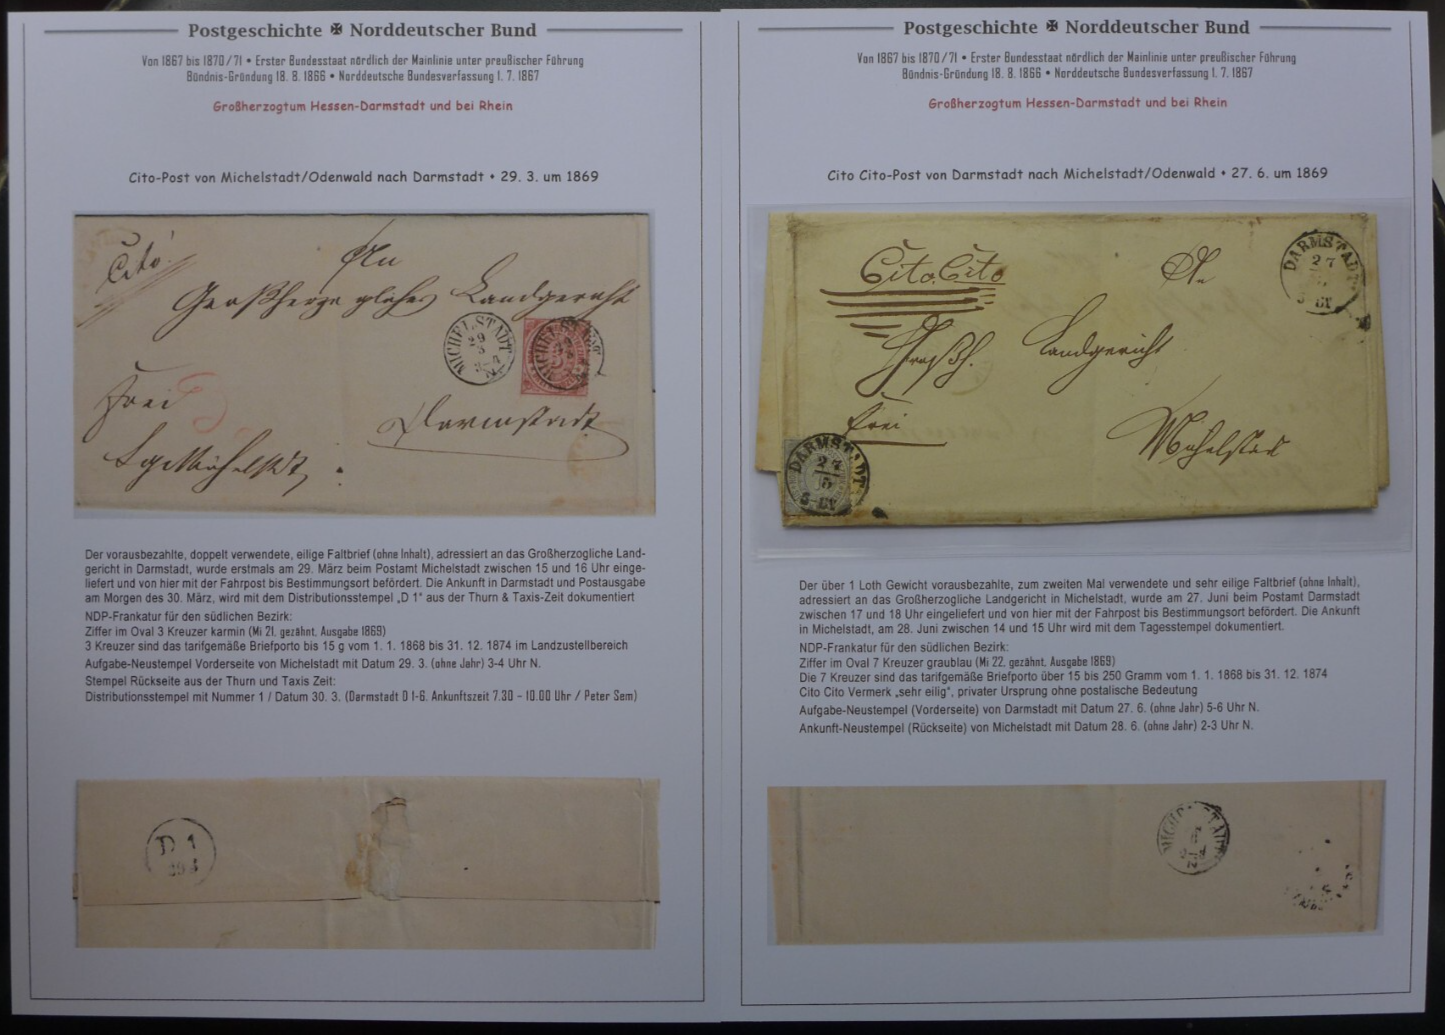 Postgeschichte ✠ Norddeutscher Bund
Von 1867 bis 1870/71 • Erster Bundesstaat nördlich der Mainlinie unter preußischer Führung
Bündnis-Gründung 18. 8. 1866 • Norddeutsche Bundesverfassung 1. 7. 1867
Großherzogtum Hessen-Darmstadt und bei Rhein
Cito-Post von Michelstadt/Odenwald nach Darmstadt • 29. 3. um 1869
Cito
An
Großherzogliches Landgericht
MICHELSTADT
29
3
3-4
N
MICHELSTADT
Frei
Darmstadt
Der vorausbezahlte, doppelt verwendete, eilige Faltbrief (ohne Inhalt), adressiert an das Großherzogliche Land-
gericht in Darmstadt, wurde erstmals am 29. März beim Postamt Michelstadt zwischen 15 und 16 Uhr einge-
liefert und von hier mit der Fahrpost bis Bestimmungsort befördert. Die Ankunft in Darmstadt und Postausgabe
am Morgen des 30. März, wird mit dem Distributionsstempel „D 1" aus der Thurn & Taxis-Zeit dokumentiert
NDP-Frankatur für den südlichen Bezirk:
Ziffer im Oval 3 Kreuzer karmin (Mi 21. gezähnt, Ausgabe 1869)
3 Kreuzer sind das tarifgemäße Briefporto bis 15 g vom 1. 1. 1868 bis 31. 12. 1874 im Landzustellbereich
Aufgabe-Neustempel Vorderseite von Michelstadt mit Datum 29. 3. (ohne Jahr) 3-4 Uhr N.
Stempel Rückseite aus der Thurn und Taxis Zeit:
Distributionsstempel mit Nummer 1 / Datum 30. 3. (Darmstadt D 1-6. Ankunftszeit 7.30 - 10.00 Uhr / Peter Sem)
D 1
Postgeschichte ✠ Norddeutscher Bund
Von 1867 bis 1870/71 • Erster Bundesstaat nördlich der Mainlinie unter preußischer Führung
Bündnis-Gründung 18. 8. 1866 • Norddeutsche Bundesverfassung 1. 7. 1867
Großherzogtum Hessen-Darmstadt und bei Rhein
Cito Cito-Post von Darmstadt nach Michelstadt/Odenwald • 27. 6. um 1869
Cito Cito
An
DARMSTADT
27
Großh. Landgericht
Frei
Michelstadt
DARMSTADT
27
Der über 1 Loth Gewicht vorausbezahlte, zum zweiten Mal verwendete und sehr eilige Faltbrief (ohne Inhalt),
adressiert an das Großherzogliche Landgericht in Michelstadt, wurde am 27. Juni beim Postamt Darmstadt
zwischen 17 und 18 Uhr eingeliefert und von hier mit der Fahrpost bis Bestimmungsort befördert. Die Ankunft
in Michelstadt, am 28. Juni zwischen 14 und 15 Uhr wird mit dem Tagesstempel dokumentiert.
NDP-Frankatur für den südlichen Bezirk:
Ziffer im Oval 7 Kreuzer graublau (Mi 22. gezähnt, Ausgabe 1869)
Die 7 Kreuzer sind das tarifgemäße Briefporto über 15 bis 250 Gramm vom 1. 1. 1868 bis 31. 12. 1874
Cito Cito Vermerk „sehr eilig", privater Ursprung ohne postalische Bedeutung
Aufgabe-Neustempel (Vorderseite) von Darmstadt mit Datum 27. 6. (ohne Jahr) 5-6 Uhr N.
Ankunft-Neustempel (Rückseite) von Michelstadt mit Datum 28. 6. (ohne Jahr) 2-3 Uhr N.
MICHELSTADT